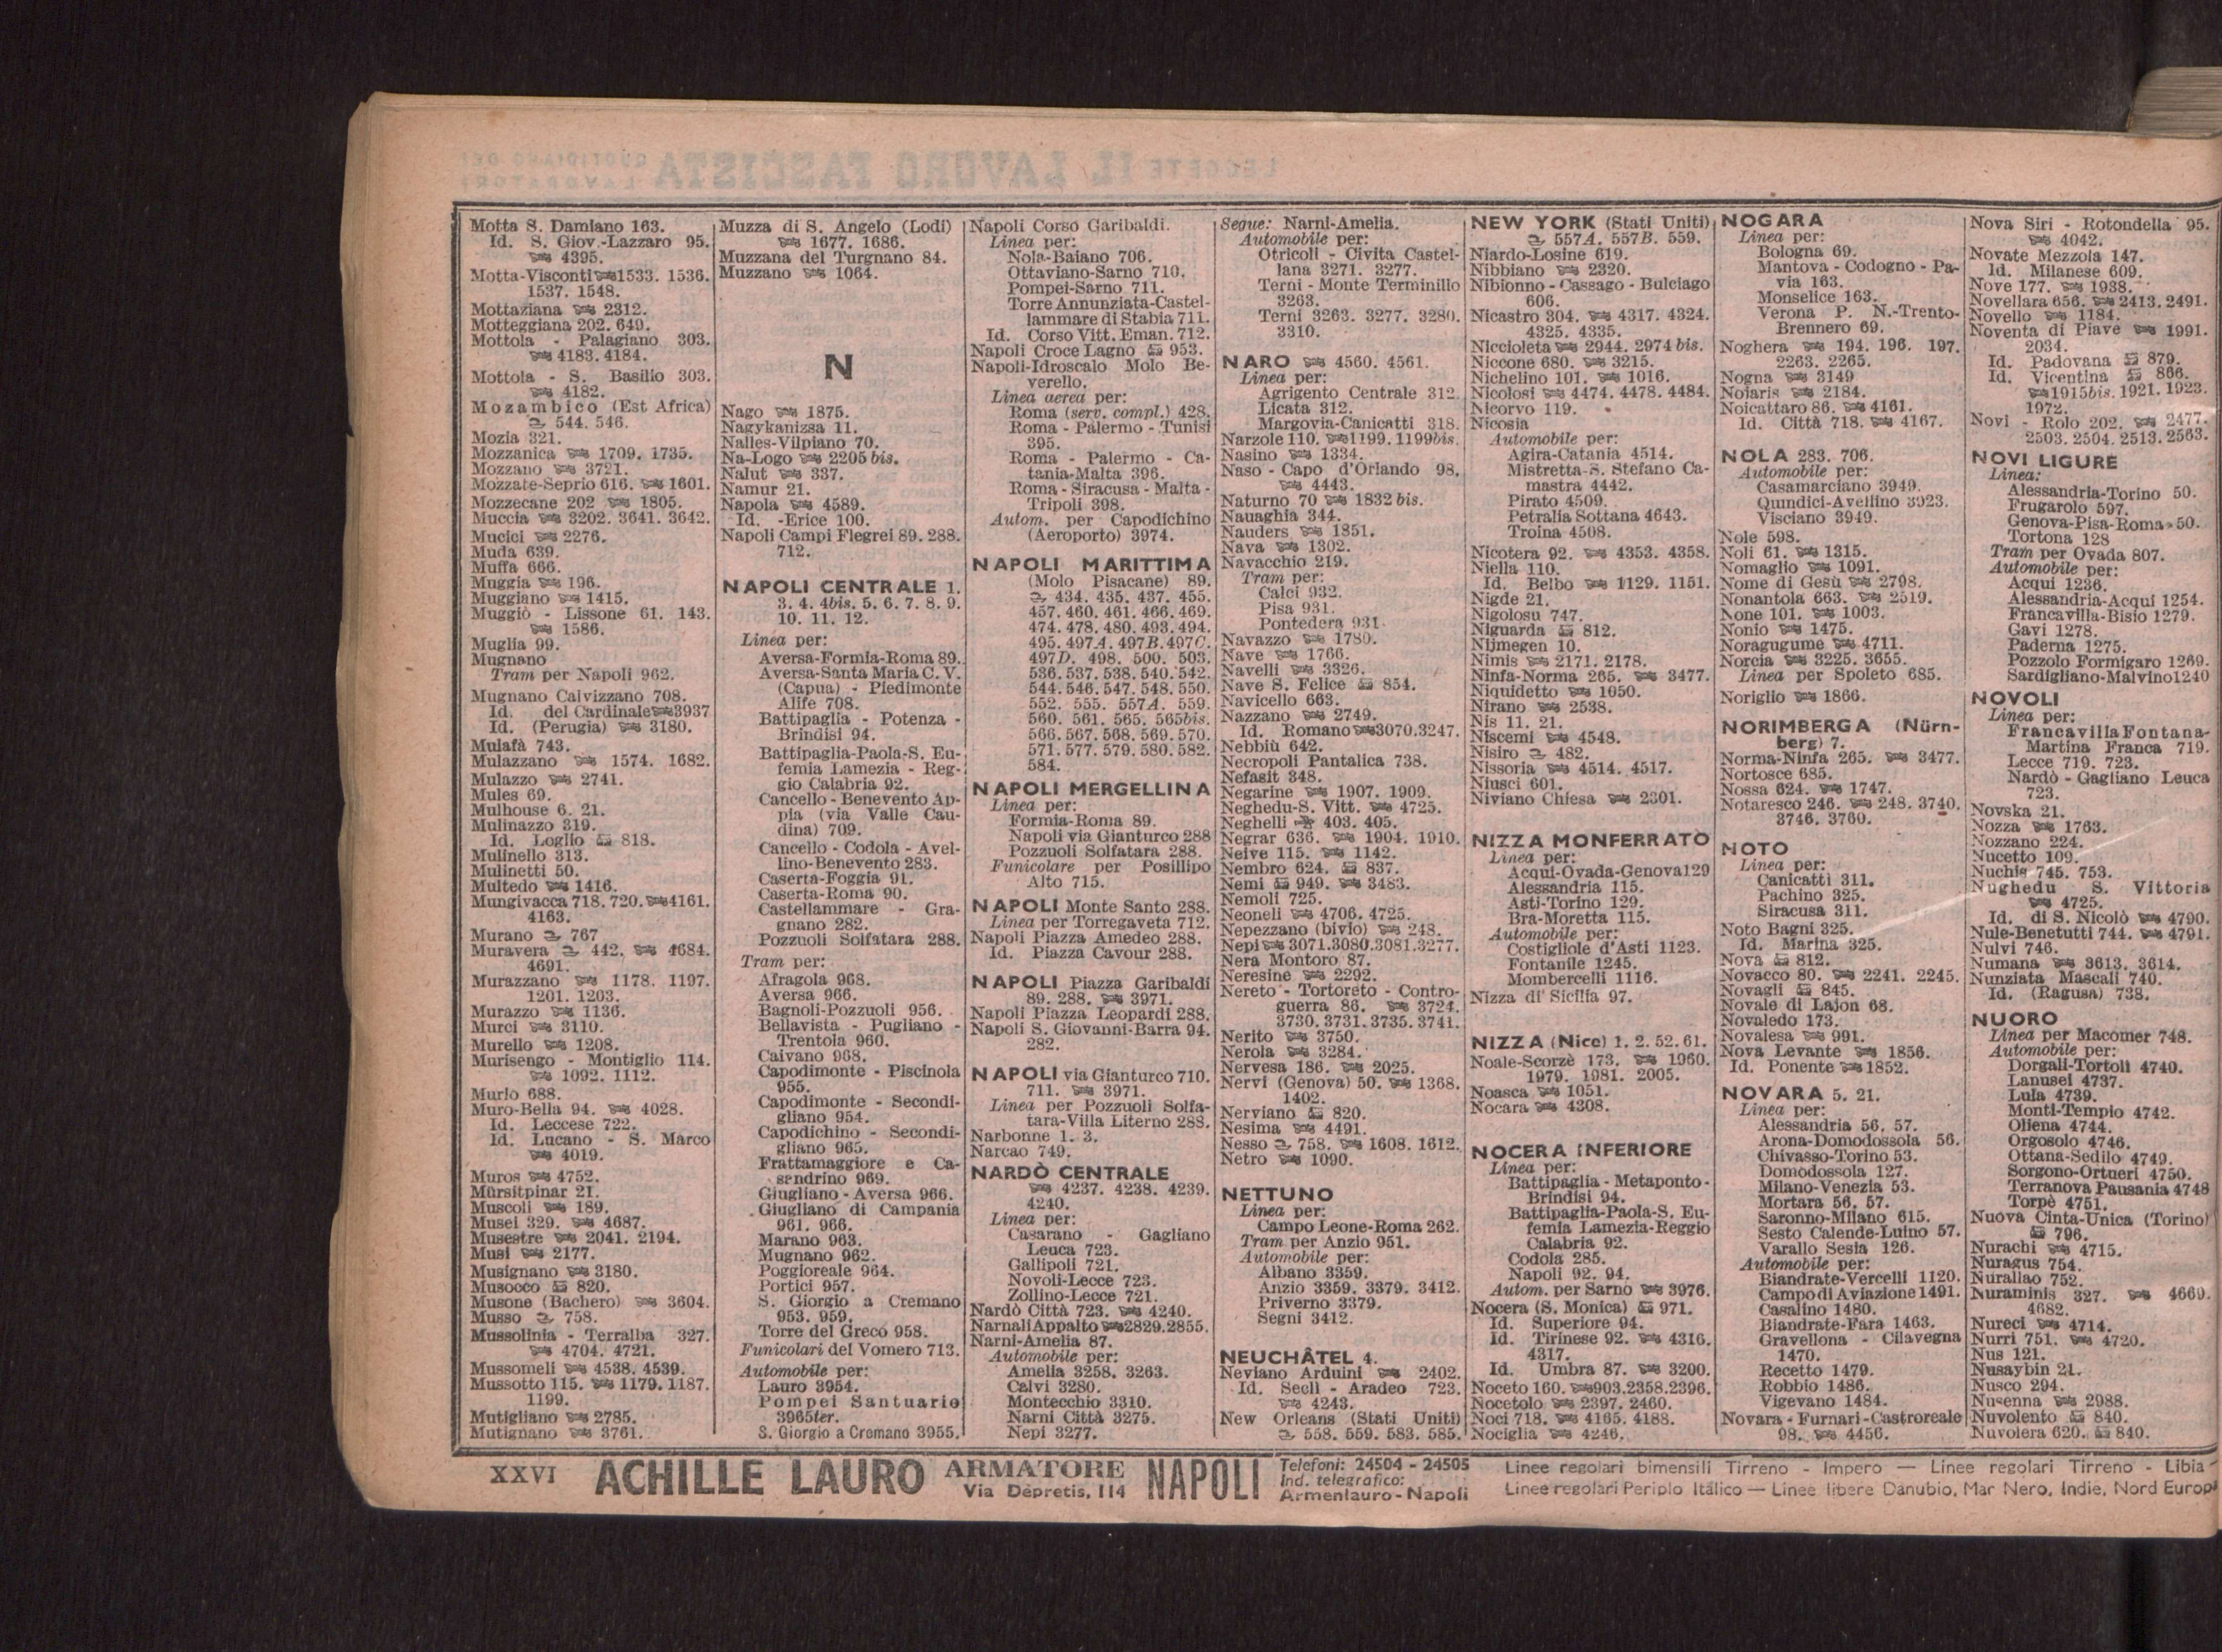 Motta S. Damiano 163.
Id. S. Giov.-Lazzaro 95.
4395.
Motta-Visconti 1533. 1536.
1537. 1548.
Mottaziana 2312.
Motteggiana 202. 649.
Mottola - Palagiano 303.
4183. 4184.
Mottola - S. Basilio 303.
4182.
Mozambico (Est Africa)
544. 546.
Mozia 321.
Mozzanica 1709. 1735.
Mozzano 3721.
Mozzate-Seprio 616. 1601.
Mozzecane 202 1805.
Muccia 3202. 3641. 3642.
Mucici 2276.
Muda 639.
Muffa 666.
Muggia 196.
Muggiano 1415.
Muggiò - Lissone 61. 143.
1586.
Muglia 99.
Mugnano
Tram per Napoli 962.
Mugnano Calvizzano 708.
Id. del Cardinale 3937
Id. (Perugia) 3180.
Mulafà 743.
Mulazzano 1574. 1682.
Mulazzo 2741.
Mules 69.
Mulhouse 6. 21.
Mulinazzo 319.
Id. Loglio 818.
Mulinello 313.
Mulinetti 50.
Multedo 1416.
Mungivacca 718. 720. 4161.
4163.
Murano 767
Muravera 442. 4684.
4691.
Murazzano 1178. 1197.
1201. 1203.
Murazzo 1136.
Murci 3110.
Murello 1208.
Murisengo - Montiglio 114.
1092. 1112.
Murlo 688.
Muro-Bella 94. 4028.
Id. Leccese 722.
Id. Lucano - S. Marco
4019.
Muros 4752.
Mürsitpinar 21.
Muscoli 189.
Musei 329. 4687.
Musestre 2041. 2194.
Musi 2177.
Musignano 3180.
Musocco 820.
Musone (Bachero) 3604.
Musso 758.
Mussolinia - Terralba 327.
4704. 4721.
Mussomeli 4538. 4539.
Mussotto 115. 1179. 1187.
1199.
Mutigliano 2785.
Mutignano 3761.
Muzza di S. Angelo (Lodi)
1677. 1686.
Muzzana del Turgnano 84.
Muzzano 1064.
N
Nago 1875.
Nagykanizsa 11.
Nalles-Vilpiano 70.
Na-Logo 2205 bis.
Nalut 337.
Namur 21.
Napola 4589.
Id. -Erice 100.
Napoli Campi Flegrei 89. 288.
712.
NAPOLI CENTRALE 1.
3. 4. 4bis. 5. 6. 7. 8. 9.
10. 11. 12.
Linea per:
Aversa-Formia-Roma 89.
Aversa-Santa Maria C. V.
(Capua) - Piedimonte
Alife 708.
Battipaglia - Potenza -
Brindisi 94.
Battipaglia-Paola-S. Eu-
femia Lamezia - Reg-
gio Calabria 92.
Cancello - Benevento Ap-
pia (via Valle Cau-
dina) 709.
Cancello - Codola - Avel-
lino-Benevento 283.
Caserta-Foggia 91.
Caserta-Roma 90.
Castellammare - Gra-
gnano 282.
Pozzuoli Solfatara 288.
Tram per:
Afragola 968.
Aversa 966.
Bagnoli-Pozzuoli 956.
Bellavista - Pugliano -
Trentola 960.
Caivano 968.
Capodimonte - Piscinola
955.
Capodimonte - Secondi-
gliano 954.
Capodichino - Secondi-
gliano 965.
Frattamaggiore e Ca-
sandrino 969.
Giugliano - Aversa 966.
Giugliano di Campania
961. 966.
Marano 963.
Mugnano 962.
Poggioreale 964.
Portici 957.
S. Giorgio a Cremano
953. 959.
Torre del Greco 958.
Funicolari del Vomero 713.
Automobile per:
Lauro 3954.
Pompei Santuario
3965ter.
S. Giorgio a Cremano 3955.
Napoli Corso Garibaldi.
Linea per:
Nola-Baiano 706.
Ottaviano-Sarno 710.
Pompei-Sarno 711.
Torre Annunziata-Castel-
lammare di Stabia 711.
Id. Corso Vitt. Eman. 712.
Napoli Croce Lagno 953.
Napoli-Idroscalo Molo Be-
verello.
Linea aerea per:
Roma (serv. compl.) 428.
Roma - Palermo - Tunisi
395.
Roma - Palermo - Ca-
tania-Malta 396.
Roma - Siracusa - Malta -
Tripoli 398.
Autom. per Capodichino
(Aeroporto) 3974.
NAPOLI MARITTIMA
(Molo Pisacane) 89.
434. 435. 437. 455.
457. 460. 461. 466. 469.
474. 478. 480. 493. 494.
495. 497A. 497B. 497C.
497D. 498. 500. 503.
536. 537. 538. 540. 542.
544. 546. 547. 548. 550.
552. 555. 557A. 559.
560. 561. 565. 565bis.
566. 567. 568. 569. 570.
571. 577. 579. 580. 582.
584.
NAPOLI MERGELLINA
Linea per:
Formia-Roma 89.
Napoli via Gianturco 288
Pozzuoli Solfatara 288.
Funicolare per Posillipo
Alto 715.
NAPOLI Monte Santo 288.
Linea per Torregaveta 712.
Napoli Piazza Amedeo 288.
Id. Piazza Cavour 288.
NAPOLI Piazza Garibaldi
89. 288. 3971.
Napoli Piazza Leopardi 288.
Napoli S. Giovanni-Barra 94.
282.
NAPOLI via Gianturco 710.
711. 3971.
Linea per Pozzuoli Solfa-
tara-Villa Literno 288.
Narbonne 1. 3.
Narcao 749.
NARDÒ CENTRALE
4237. 4238. 4239.
4240.
Linea per:
Casarano - Gagliano
Leuca 723.
Gallipoli 721.
Novoli-Lecce 723.
Zollino-Lecce 721.
Nardò Città 723. 4240.
Narnali Appalto 2829. 2855.
Narni-Amelia 87.
Automobile per:
Amelia 3258. 3263.
Calvi 3280.
Montecchio 3310.
Narni Città 3275.
Nepi 3277.
Segue: Narni-Amelia.
Automobile per:
Otricoli - Civita Castel-
lana 3271. 3277.
Terni - Monte Terminillo
3263.
Terni 3263. 3277. 3280.
3310.
NARO 4560. 4561.
Linea per:
Agrigento Centrale 312.
Licata 312.
Margovia-Canicattì 318.
Narzole 110. 1199. 1199bis.
Nasino 1334.
Naso - Capo d'Orlando 98.
4443.
Naturno 70 1832 bis.
Nauaghia 344.
Nauders 1851.
Nava 1302.
Navacchio 219.
Tram per:
Calci 932.
Pisa 931.
Pontedera 931.
Navazzo 1780.
Nave 1766.
Navelli 3326.
Nave S. Felice 854.
Navicello 663.
Nazzano 2749.
Id. Romano 3070. 3247.
Nebbiù 642.
Necropoli Pantalica 738.
Nefasit 348.
Negarine 1907. 1909.
Neghedu-S. Vitt. 4725.
Neghelli 403. 405.
Negrar 636. 1904. 1910.
Neive 115. 1142.
Nembro 624. 837.
Nemi 949. 3483.
Nemoli 725.
Neoneli 4706. 4725.
Nepezzano (bivio) 248.
Nepi 3071. 3080. 3081. 3277.
Nera Montoro 87.
Neresine 2292.
Nereto - Tortoreto - Contro-
guerra 86. 3724.
3730. 3731. 3735. 3741.
Nerito 3750.
Nerola 3284.
Nervesa 186. 2025.
Nervi (Genova) 50. 1368.
1402.
Nerviano 820.
Nesima 4491.
Nesso 758. 1608. 1612.
Netro 1090.
NETTUNO
Linea per:
Campo Leone-Roma 262.
Tram per Anzio 951.
Automobile per:
Albano 3359.
Anzio 3359. 3379. 3412.
Priverno 3379.
Segni 3412.
NEUCHÂTEL 4.
Neviano Arduini 2402.
Id. Seclì - Aradeo 723.
4243.
New Orleans (Stati Uniti)
558. 559. 583. 585.
NEW YORK (Stati Uniti)
557A. 557B. 559.
Niardo-Losine 619.
Nibbiano 2320.
Nibionno - Cassago - Bulciago
606.
Nicastro 304. 4317. 4324.
4325. 4335.
Niccioleta 2944. 2974 bis.
Niccone 680. 3215.
Nichelino 101. 1016.
Nicolosi 4474. 4478. 4484.
Nicorvo 119.
Nicosia
Automobile per:
Agira-Catania 4514.
Mistretta-S. Stefano Ca-
mastra 4442.
Pirato 4509.
Petralia Sottana 4643.
Troina 4508.
Nicotera 92. 4353. 4358.
Niella 110.
Id. Belbo 1129. 1151.
Nigde 21.
Nigolosu 747.
Niguarda 812.
Nijmegen 10.
Nimis 2171. 2178.
Ninfa-Norma 265. 3477.
Niquidetto 1050.
Nirano 2538.
Nis 11. 21.
Niscemi 4548.
Nisiro 482.
Nissoria 4514. 4517.
Niusci 601.
Niviano Chiesa 2301.
NIZZA MONFERRATO
Linea per:
Acqui-Ovada-Genova 129
Alessandria 115.
Asti-Torino 129.
Bra-Moretta 115.
Automobile per:
Costigliole d'Asti 1123.
Fontanile 1245.
Mombercelli 1116.
Nizza di Sicilia 97.
NIZZA (Nice) 1. 2. 52. 61.
Noale-Scorzè 173. 1960.
1979. 1981. 2005.
Noasca 1051.
Nocara 4308.
NOCERA INFERIORE
Linea per:
Battipaglia - Metaponto -
Brindisi 94.
Battipaglia-Paola-S. Eu-
femia Lamezia-Reggio
Calabria 92.
Codola 285.
Napoli 92. 94.
Autom. per Sarno 3976.
Nocera (S. Monica) 971.
Id. Superiore 94.
Id. Tirinese 92. 4316.
4317.
Id. Umbra 87. 3200.
Noceto 160. 903. 2358. 2396.
Nocetolo 2397. 2460.
Noci 718. 4165. 4188.
Nociglia 4246.
NOGARA
Linea per:
Bologna 69.
Mantova - Codogno - Pa-
via 163.
Monselice 163.
Verona P. N.-Trento-
Brennero 69.
Noghera 194. 196. 197.
2263. 2265.
Nogna 3149
Noiaris 2184.
Noicattaro 86. 4161.
Id. Città 718. 4167.
NOLA 283. 706.
Automobile per:
Casamarciano 3949.
Quindici-Avellino 3923.
Visciano 3949.
Nole 598.
Noli 61. 1315.
Nomaglio 1091.
Nome di Gesù 2798.
Nonantola 663. 2519.
None 101. 1003.
Nonio 1475.
Noragugume 4711.
Norcia 3225. 3655.
Linea per Spoleto 685.
Noriglio 1866.
NORIMBERGA (Nürn-
berg) 7.
Norma-Ninfa 265. 3477.
Nortosce 685.
Nossa 624. 1747.
Notaresco 246. 248. 3740.
3746. 3760.
NOTO
Linea per:
Canicattì 311.
Pachino 325.
Siracusa 311.
Noto Bagni 325.
Id. Marina 325.
Nova 812.
Novacco 80. 2241. 2245.
Novagli 845.
Novale di Lajon 68.
Novaledo 173.
Novalesa 991.
Nova Levante 1856.
Id. Ponente 1852.
NOVARA 5. 21.
Linea per:
Alessandria 56. 57.
Arona-Domodossola 56.
Chivasso-Torino 53.
Domodossola 127.
Milano-Venezia 53.
Mortara 56. 57.
Saronno-Milano 615.
Sesto Calende-Luino 57.
Varallo Sesia 126.
Automobile per:
Biandrate-Vercelli 1120.
Campo di Aviazione 1491.
Casalino 1480.
Biandrate-Fara 1463.
Gravellona - Cilavegna
1470.
Recetto 1479.
Robbio 1486.
Vigevano 1484.
Novara - Furnari - Castroreale
98. 4456.
Nova Siri - Rotondella 95.
4042.
Novate Mezzola 147.
Id. Milanese 609.
Nove 177. 1938.
Novellara 656. 2413. 2491.
Novello 1184.
Noventa di Piave 1991.
2034.
Id. Padovana 879.
Id. Vicentina 866.
1915bis. 1921. 1923.
1972.
Novi - Rolo 202. 2477.
2503. 2504. 2513. 2563.
NOVI LIGURE
Linea:
Alessandria-Torino 50.
Frugarolo 597.
Genova-Pisa-Roma 50.
Tortona 128
Tram per Ovada 807.
Automobile per:
Acqui 1236.
Alessandria-Acqui 1254.
Francavilla-Bisio 1279.
Gavi 1278.
Paderna 1275.
Pozzolo Formigaro 1269.
Sardigliano-Malvino 1240
NOVOLI
Linea per:
Francavilla Fontana-
Martina Franca 719.
Lecce 719. 723.
Nardò - Gagliano Leuca
723.
Novska 21.
Nozza 1763.
Nozzano 224.
Nucetto 109.
Nuchis 745. 753.
Nughedu S. Vittoria
4725.
Id. di S. Nicolò 4790.
Nule-Benetutti 744. 4791.
Nulvi 746.
Numana 3613. 3614.
Nunziata Mascali 740.
Id. (Ragusa) 738.
NUORO
Linea per Macomer 748.
Automobile per:
Dorgali-Tortolì 4740.
Lanusei 4737.
Lula 4739.
Monti-Tempio 4742.
Oliena 4744.
Orgosolo 4746.
Ottana-Sedilo 4749.
Sorgono-Ortueri 4750.
Terranova Pausania 4748
Torpè 4751.
Nuova Cinta-Unica (Torino)
796.
Nurachi 4715.
Nuragus 754.
Nurallao 752.
Nuraminis 327. 4669.
4682.
Nureci 4714.
Nurri 751. 4720.
Nus 121.
Nusaybin 21.
Nusco 294.
Nusenna 2988.
Nuvolento 840.
Nuvolera 620. 840.
XXVI ACHILLE LAURO ARMATORE NAPOLI
Via Depretis, 114
Telefoni: 24504 - 24505
Ind. telegrafico:
Armenlauro - Napoli
Linee regolari bimensili Tirreno - Impero — Linee regolari Tirreno - Libia -
Linee regolari Periplo Italico — Linee libere Danubio, Mar Nero, Indie, Nord Europ